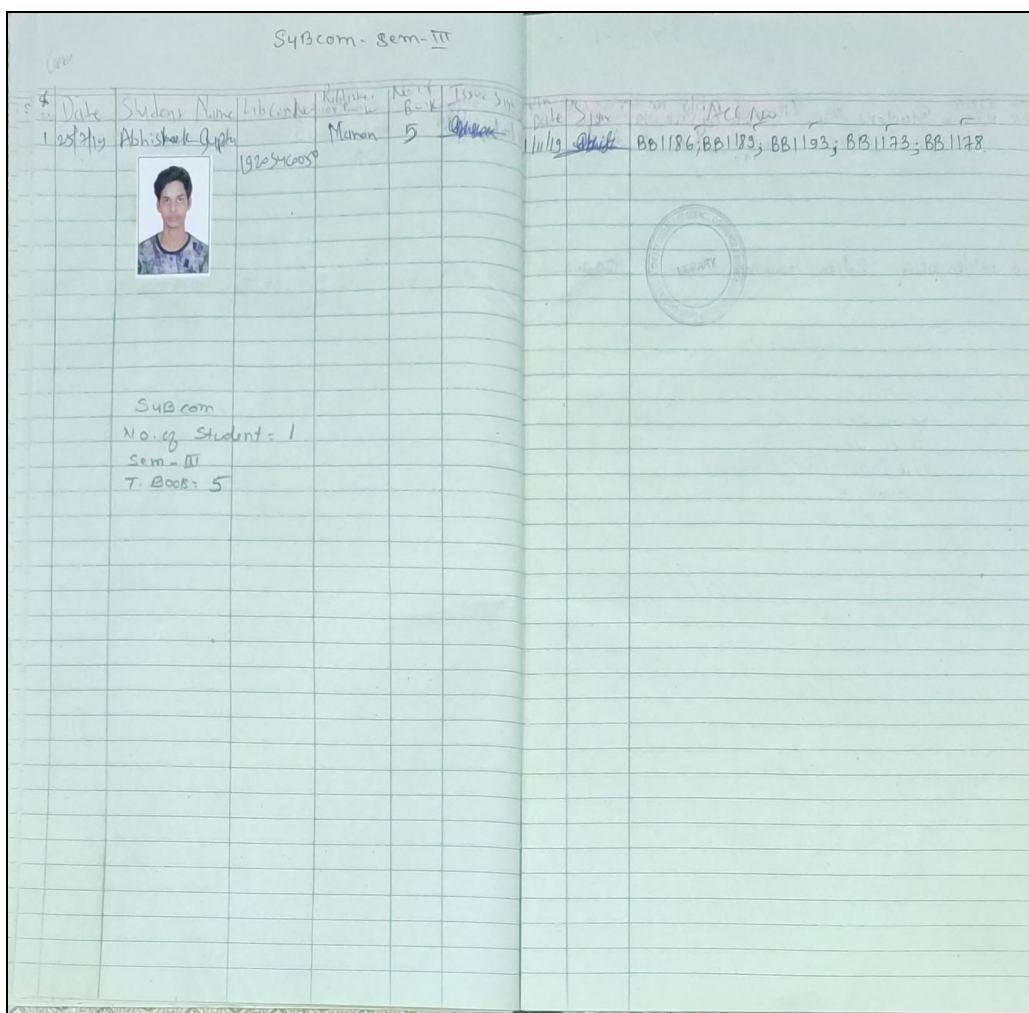 SyBcom - Sem - III
Date Student Name Lib Card No Publisher No. of Book Issue Sign Date Sign Acc No
1 25/7/19 Abhishek Gupta Manan 5 1/11/19 BB1186; BB1189; BB1193; BB1173; BB1178
LIBRARY
SyBcom
No. of Student = 1
Sem - III
T. Book = 5